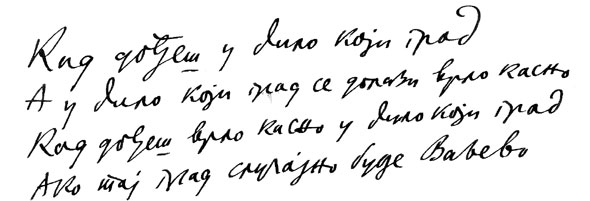 Кад дођеш у било који град
А у било који град се долази врло касно
Кад дођеш врло касно у било који град
Ако тај град случајно буде Ваљево